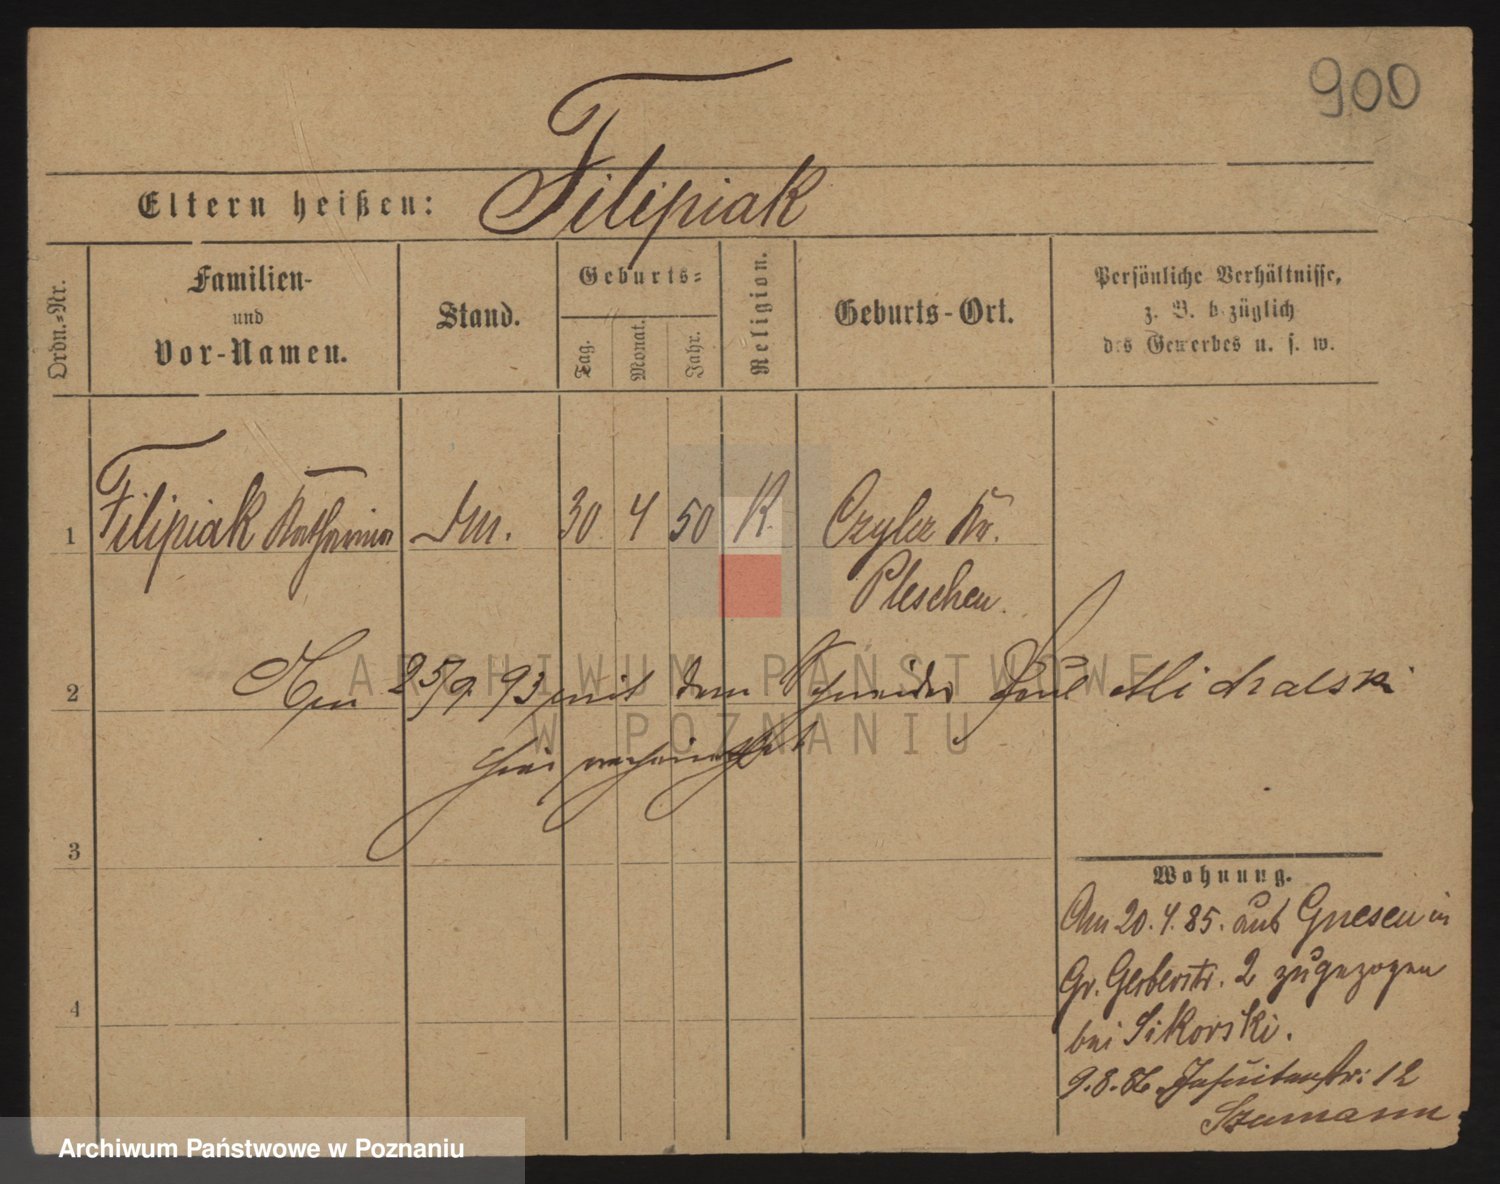 900
Filipiak
Eltern heißen:
Ordn.-Nr.
Familien-
und
Vor-Namen.
Stand.
Geburts-
Tag.
Monat.
Jahr.
Religion.
Geburts-Ort.
Persönliche Verhältnisse,
z. B. bezüglich
des Gewerbes u. s. w.
1 Filipiak Katharina 30 4 50 K. Kr.
Pleschen.
2 25/9 93 mit dem Schneider Paul Michalski
hier verheirathet
3
Wohnung.
Am 20.4.85. aus Gnesen in
Gr. Gerberstr. 2 zugezogen
bei Sikorski.
9.8.86. Jesuitenstr. 12
Szumann
4
ARCHIWUM PAŃSTWOWE
W POZNANIU
Archiwum Państwowe w Poznaniu